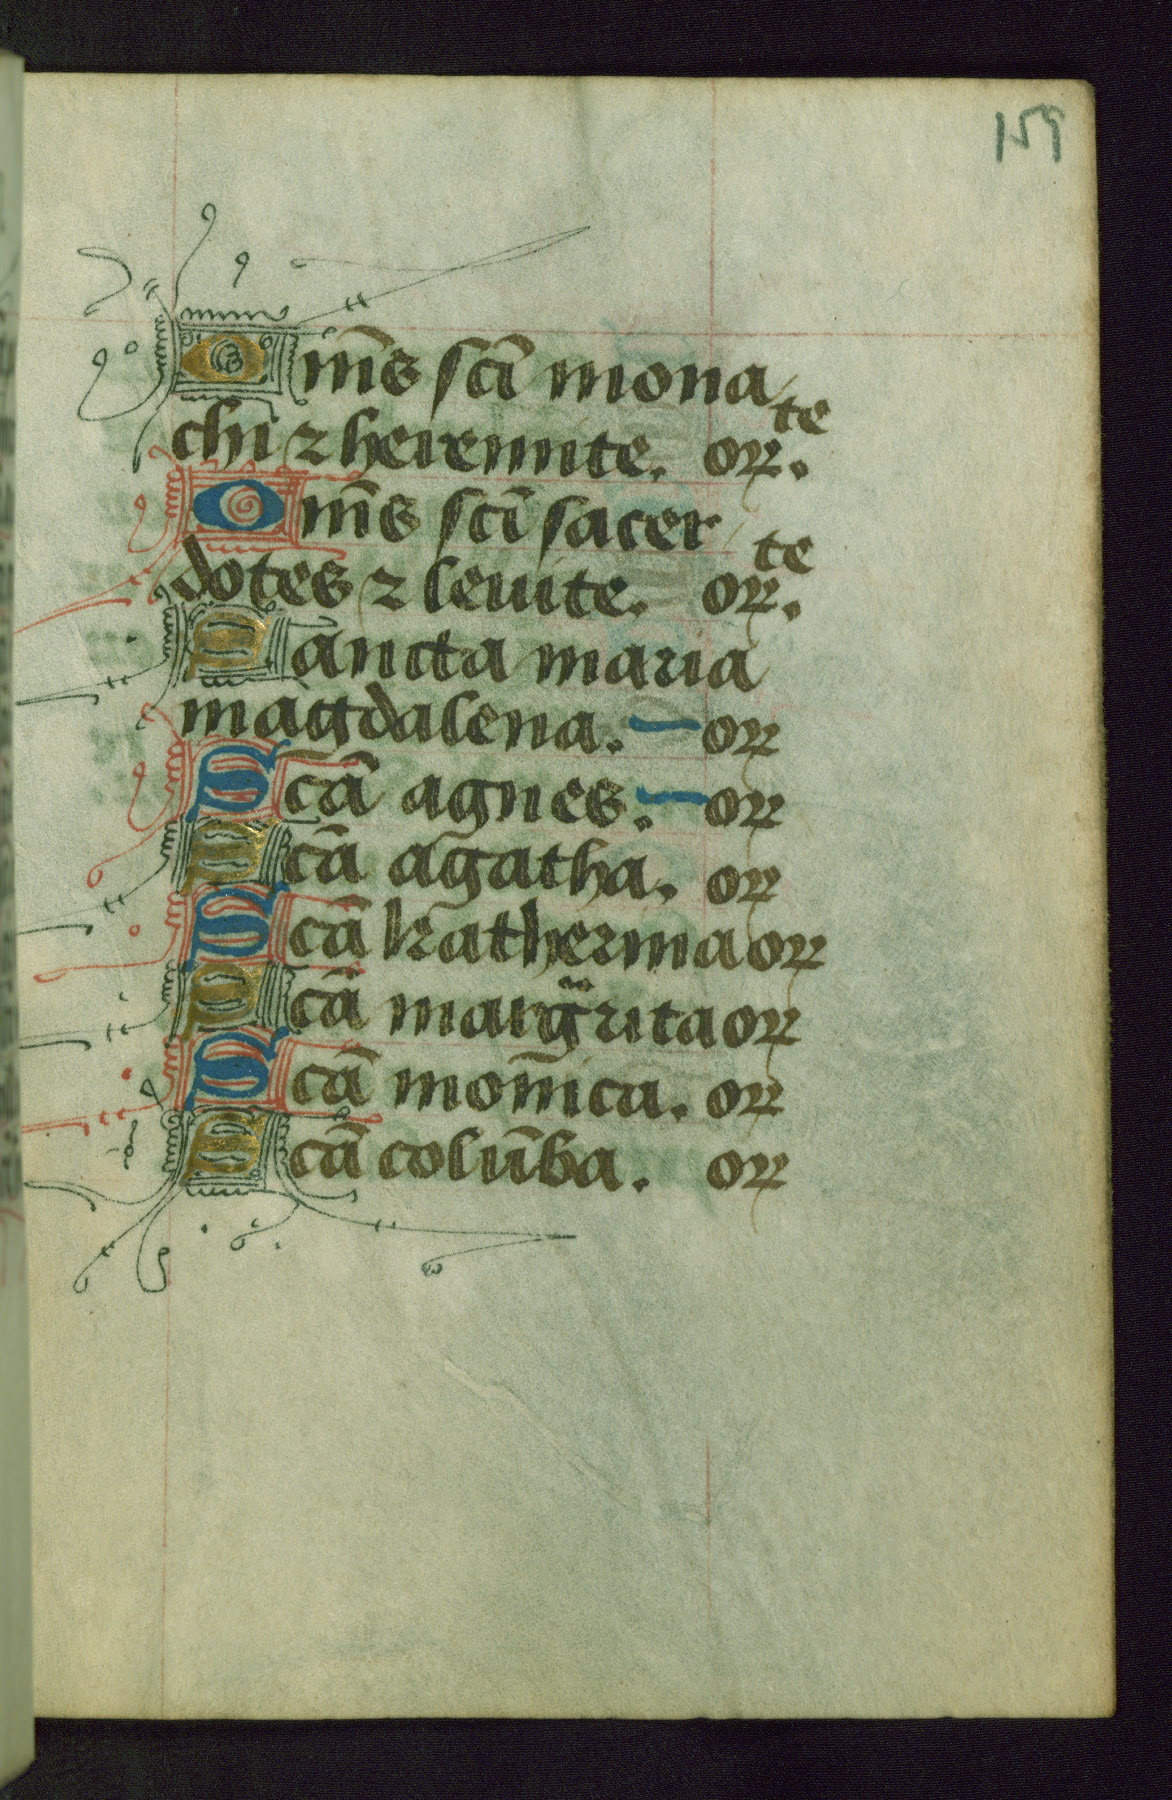 159
Om̄s sc̄i mona
chi ⁊ heremite. or. te
Om̄s sc̄i sacer
dotes ⁊ leuite. or. te
Sancta maria
magdalena. or
Sc̄a agnes. or
Sc̄a agatha. or
Sc̄a katherina or
Sc̄a margarita or
Sc̄a mon̄ica. or
Sc̄a colūba. or